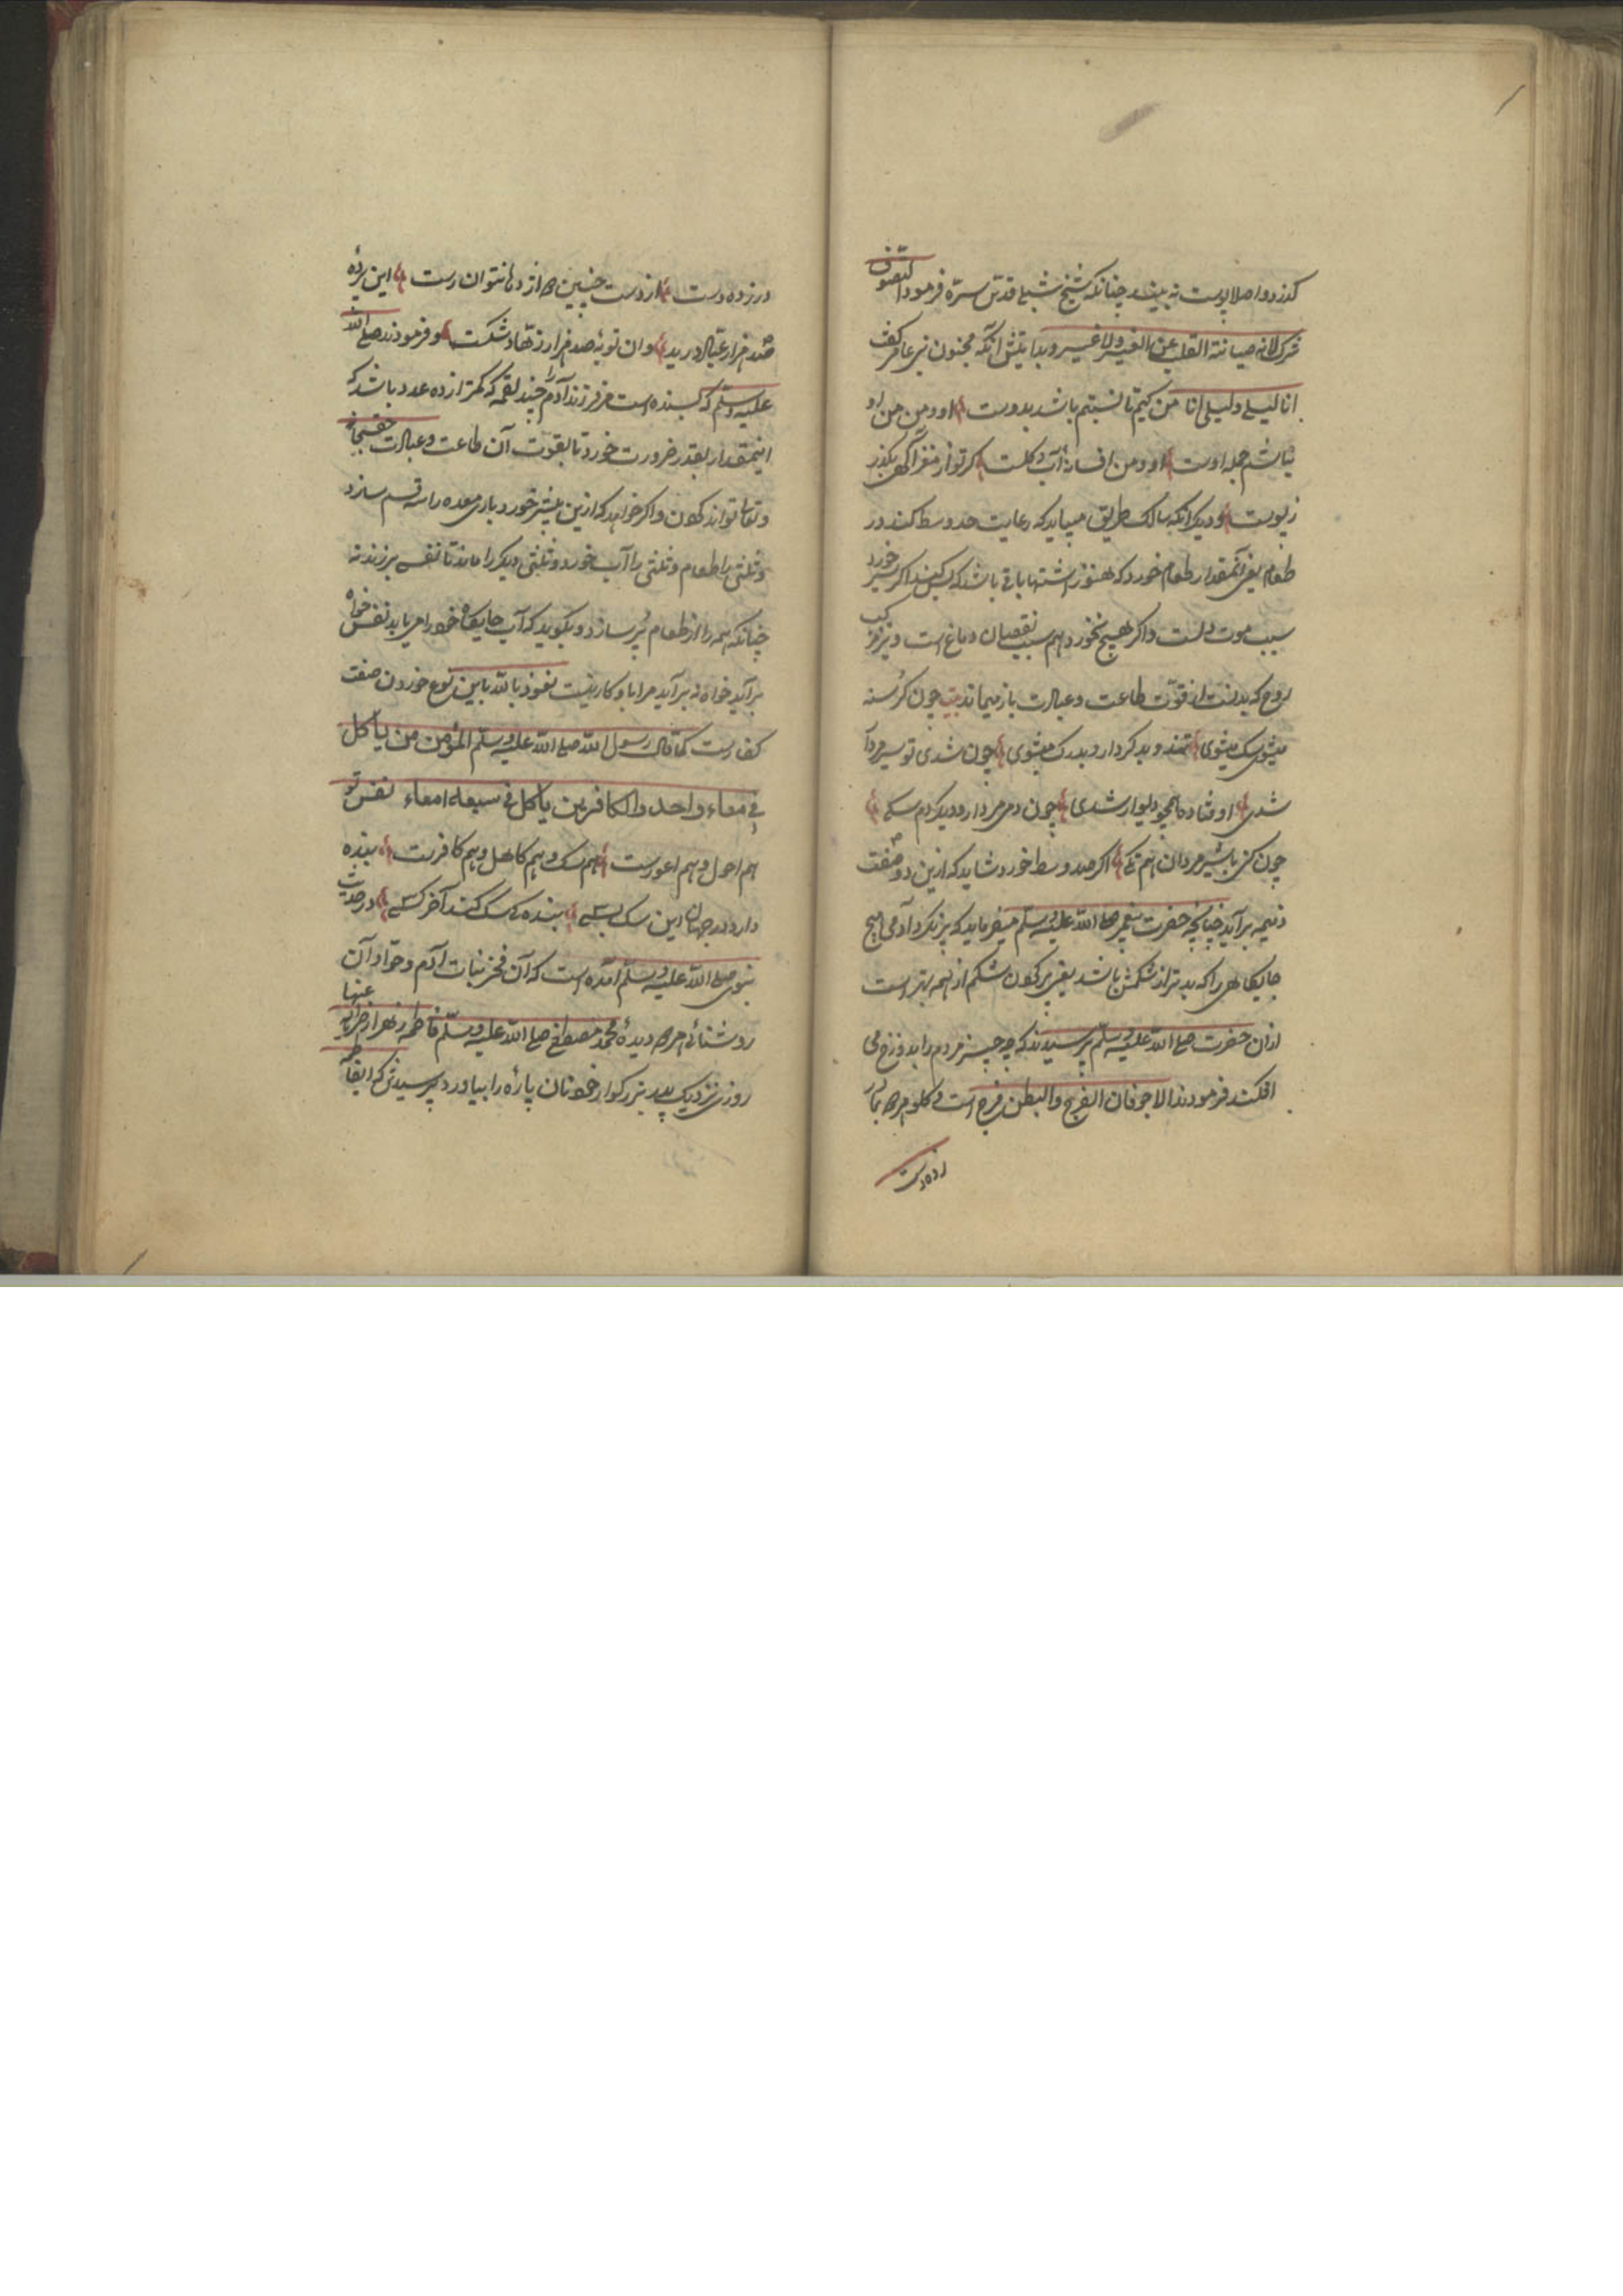 کذرد و اصلا پوست نه بیند چنانکه شیخ شبلی قدس سرّه فرمود التصوف
شرک لانه صیانة القلب عن الغیر ولا غیر و بدایتش آنکه مجنون بنی عامر گفت
انا لیلی و لیلی انا من کیم تا نسبتم باشد بدوست او و من من او
نباشم جمله اوست او و من افسانهٔ آب و کلست کر تو از مغز آکهی بکذر
ز پوست و دیکر آنکه سالک طریق میباید که رعایت حد وسط کند در
طعام یعنی آنمقدار طعام خورد که هنوز اشتها باقی باشد که بس کند اکر سیر خورد
سبب موت دلست و اکر هیچ نخورد هم سبب نقصان دماغ است و نیز مرکب
روح که بدنست از قوّت طاعت و عبادت باز میماند بیت چون کرسنه
میشوی سک میشوی تند و بد کردار و بدرک میشوی چون شدی تو سیر مردار
شدی اوفتاده همچو دیوار شدی چون دمی مردار و دیکر دم سکی
چون کنی با شیر مردان هم تکی اکر حد وسط خورد شاید که ازین دو صفت
ذمیمه برآید چنانچه حضرت پیغمبر صلی الله علیه وسلم میفرماید که پر نکرد آدمی هیچ
جایکاهی را که بدتر از شکمش باشد یعنی پر کردن شکم از همه بتر است
ازان حضرت صلی الله علیه وسلم پرسیدند که چه چیز مردم را بدوزخ می
افکند فرمودند الاجوفان الفرج والبطن فرج است و کلو مرصد
زده درست
درزده درست از دست چنین از دها نتوان رست این پردهٔ
صد هزار عبّاد درید وان توبهٔ صد هزار زهّاد شکست و فرمودند صلی الله
علیه وسلم که بسنده است مر فرزند آدم را چند لقمه که کمتر از ده عدد باشد که
اینمقدار بقدر ضرورت خورد تا بقوت آن طاعت و عبادت حق سبحانه
و تعالی تواند کردن و اکر خواهد که ازین بیشتر خورد باری معده را سه قسم سازد
و ثلثی را طعام و ثلثی را آب خورد و ثلثی دیکر را ماند تا نفس برزند نه
چنانکه همه را از طعام پُر سازد و بکوید که آب جایکاه خود را می یابد نفس خواه
برآید خواه نه برآید مرا با او کار نیست نعوذ بالله باین نوع خوردن صفت
کفارست کما قال رسول الله صلی الله علیه وسلم المؤمن من یأکل
فی معاء واحد والکافر من یأکل فی سبعة امعاء نفس تو
هم احول و هم اعورست هم سک و هم کاهل و هم کافرست بنده
دارد در جهان این سک بسی بنده سک کند آخر کسی در حدیث
نبوی صلی الله علیه وسلم آمده است که آن فخر بنات آدم و حوّا و آن
روشنائی هر دو دیدهٔ محمد مصطفی صلی الله علیه وسلم فاطمه زهرا رضی الله عنها
روزی نزدیک پدر بزرکوار خود نان پارهٔ را بیاورد پرسیدش که ای فاطمه